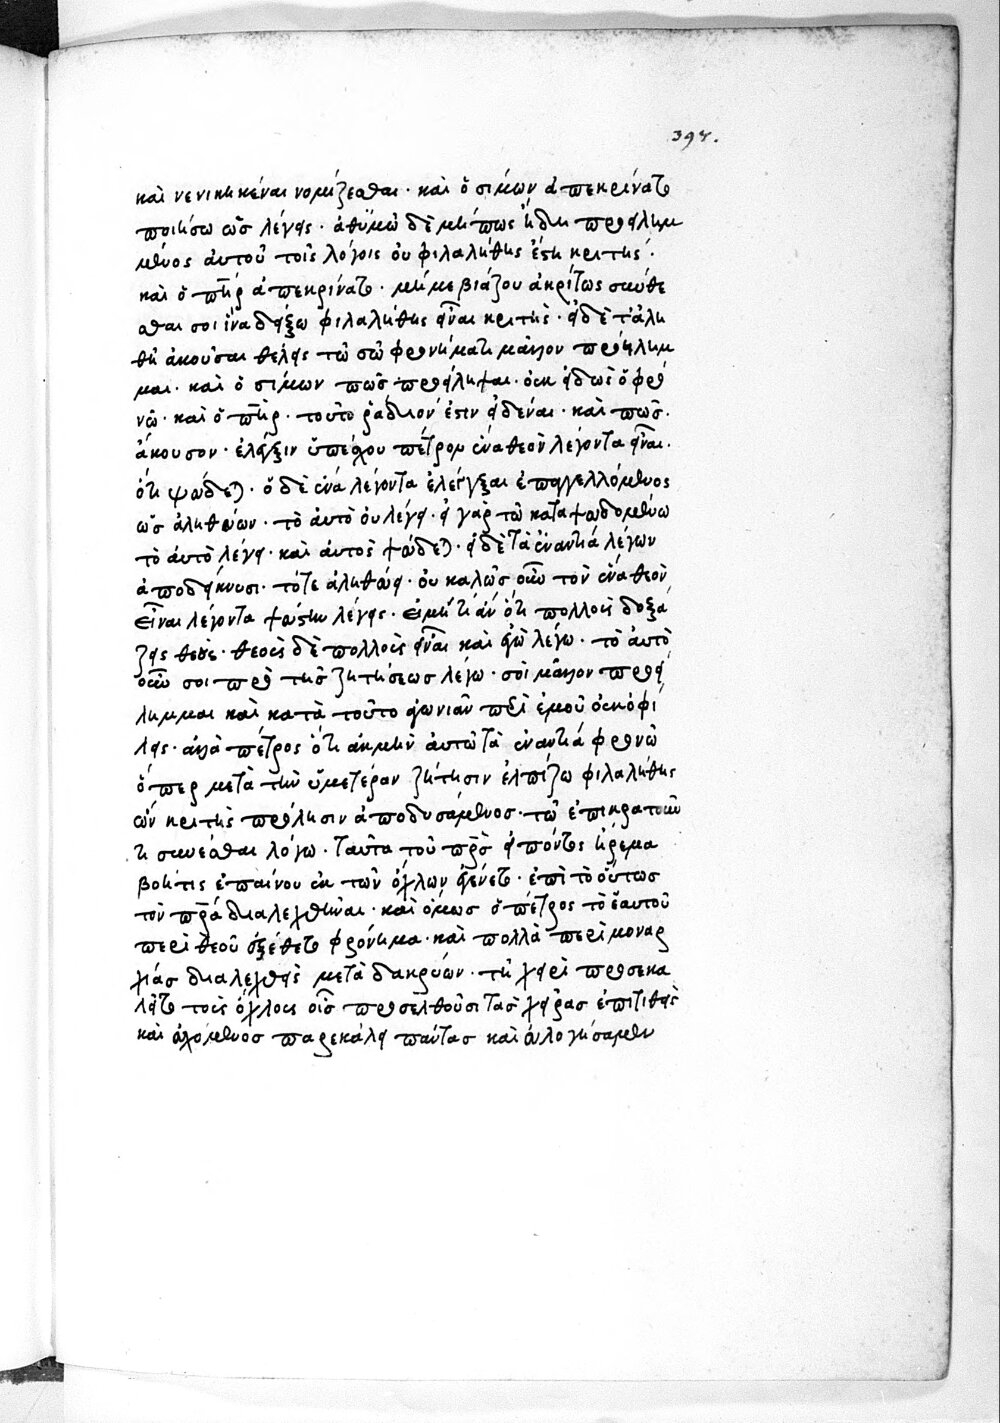 397.
καὶ νενικηκέναι νομίζεσθαι· καὶ ὁ σίμων ἀπεκρίνατο
ποιήσω ὡς λέγεις· ἀθυμῶ δὲ μήπως ἤδη προειλημ
μένος αὐτοῦ τοῖς λόγοις οὐ φιλαλήθης ἔση κριτής·
καὶ ὁ πηρ ἀπεκρίνατο· μή με βιάζου ἀκρίτως συνθέ
σθαι σοι ἵνα δείξω φιλαλήθης εἶναι κριτής· εἰ δὲ τἀλη
θῆ ἀκοῦσαι θέλεις τῶ σῶ φρονήματι μᾶλλον προείλημ
μαι· καὶ ὁ σίμων πῶς προείληψαι· οὐκ εἰδὼς ὃ φρο
νῶ· καὶ ὁ πηρ· τοῦτο ῥάδιον ἐστιν εἰδέναι· καὶ πῶς·
ἄκουσον· ἐλέγξειν ὑπέσχου πέτρον ἕνα θεὸν λέγοντα εἶναι·
ὅτι ψεύδεται· ὁ δὲ ἕνα λέγοντα ἐλέγξαι ἐπαγγελλόμενος
ὡς ἀληθεύων· τὸ αὐτὸ οὐ λέγει· εἰ γὰρ τῶ καταψευδομένω
τὸ αὐτὸ λέγει· καὶ αὐτὸς ψεύδεται· εἰ δὲ τὰ ἐναντία λέγων
ἀποδείκνυσι· τότε ἀληθεύει· οὐ καλῶς οὖν τὸν ἕνα θεὸν
εἶναι λέγοντα ψεύστην λέγεις· εἰ μή τι ἂν ὅτι πολλοὺς δοξά
ζεις θεούς· θεοὺς δὲ πολλοὺς εἶναι καὶ ἐγὼ λέγω· τὸ αὐτὸ
οὖν σοι πρὸ τῆς ζητήσεως λέγω· σοὶ μᾶλλον προεί
λημμαι καὶ κατὰ τοῦτο ἀγωνιᾶν περὶ ἐμοῦ οὐκ ὀφεί
λεις· ἀλλὰ πέτρος ὅτι ἀκμὴν αὐτῶ τὰ ἐναντία φρονῶ
ὅπερ μετὰ τὴν ὑμετέραν ζήτησιν ἐλπίζω φιλαλήθης
ὢν κριτὴς πρόληψιν ἀποδυσάμενος· τῶ ἐπικρατοῦν
τι συνέσθαι λόγω· ταῦτα τοῦ πρς εἰπόντος ἠρέμα
βοή τις ἐπαίνου ἐκ τῶν ὄχλων ἐγένετο· ἐπὶ τὸ οὕτως
τὸν πρα διαλεχθῆναι· καὶ ὅμως ὁ πέτρος τὸ ἑαυτοῦ
περὶ θεοῦ ἐξέθετο φρόνημα· καὶ πολλὰ περὶ μοναρ
χίας διαλεχθεὶς μετὰ δακρύων· τῆ χειρὶ προσεκα
λεῖτο τοὺς ὄχλους οἷς προσελθοῦσι τὰς χεῖρας ἐπιτιθεὶς
καὶ εὐχόμενος παρεκάλει πάντας καὶ εὐλογήσαμεν